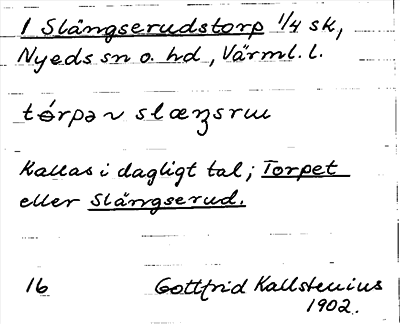 1 Slängserudstorp 1/4 sk,
Nyeds sn o. hd, Värml. l.
Kallas i dagligt tal; Torpet
eller Slängserud.
16 Gottfrid Kallstenius
1902.